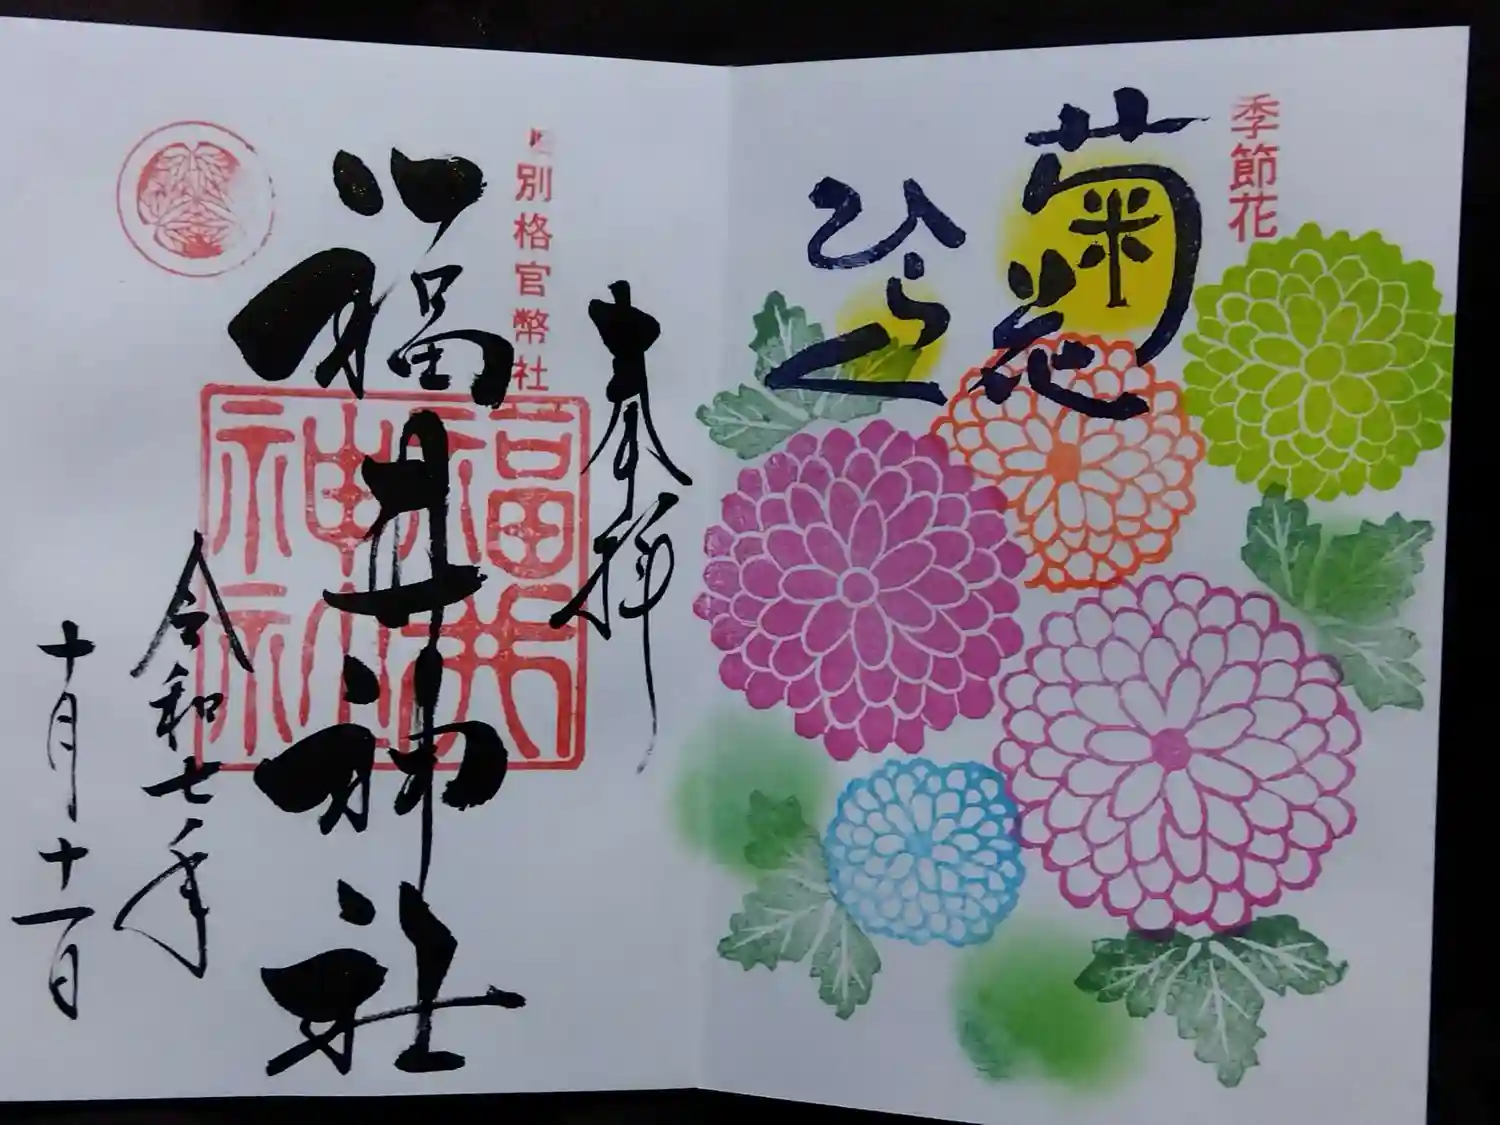 季節花
菊花
ひらく
奉拝
別格官幣社
福井神社
福井神社
令和七年
十月十一日